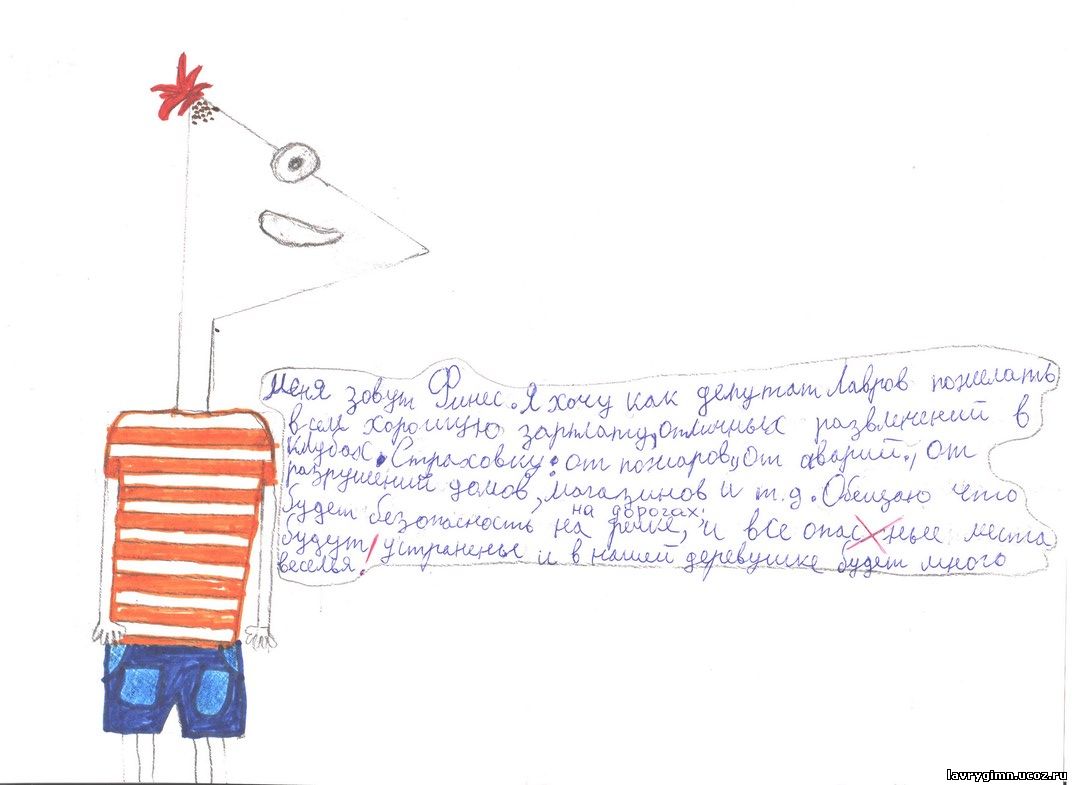 Меня зовут Финес. Я хочу как депутат Лавров пожелать
всем хорошую зарплату, отличных развличений в
клубах. Страховку: от пожаров, от аварий, от
разрушений домов, магазинов и т.д. Обещаю что
на дорогах,
будет безопасность на речке, и все опасные места
будут устраненые и в нашей деревушке будет много
веселья!
lavrygimn.ucoz.ru